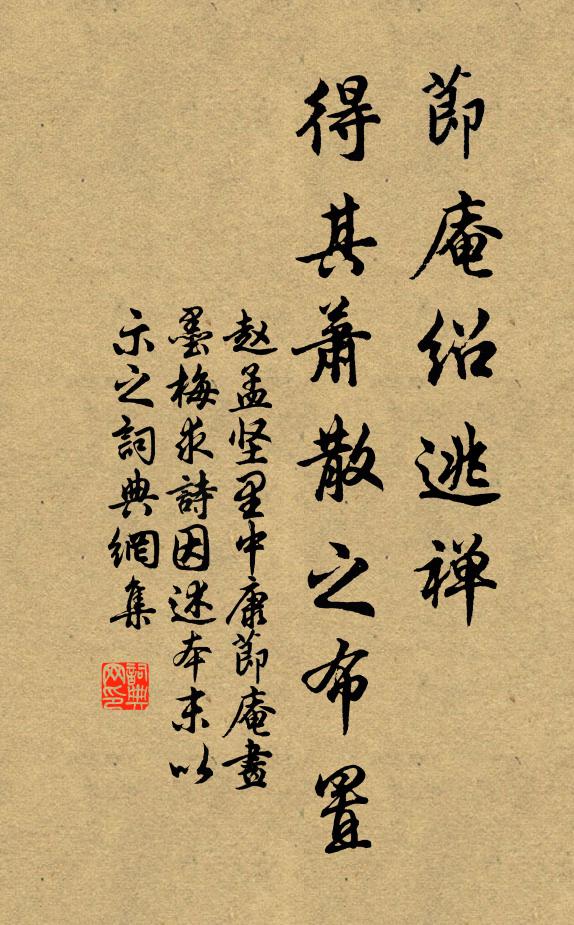 節庵紹逃禅
得其蕭散之布置
赵孟坚里中康節庵畫
墨梅求詩因述本末以
示之詞典網集
詞典网印